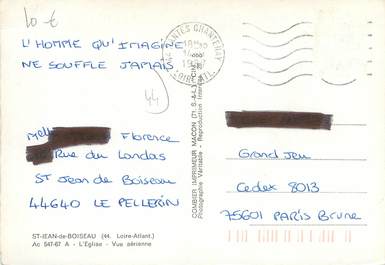 10 €
L'HOMME QU'IMAGINE
NE SOUFFLE JAMAIS
44
44 NANTES CHANTENAY
18H
LOIRE ATL.
Melle Florence
Rue du Landas
ST Jean de Boiseau
44640 LE PELLERIN
ST-JEAN-de-BOISEAU (44. Loire-Atlant.)
Ac 547-67 A - L'Eglise - Vue aérienne
COMBIER IMPRIMEUR MACON (71. S.-&-L.)
Photographie Véritable - Reproduction
Grand Jeu
Cedex 8013
75601 PARIS Brune